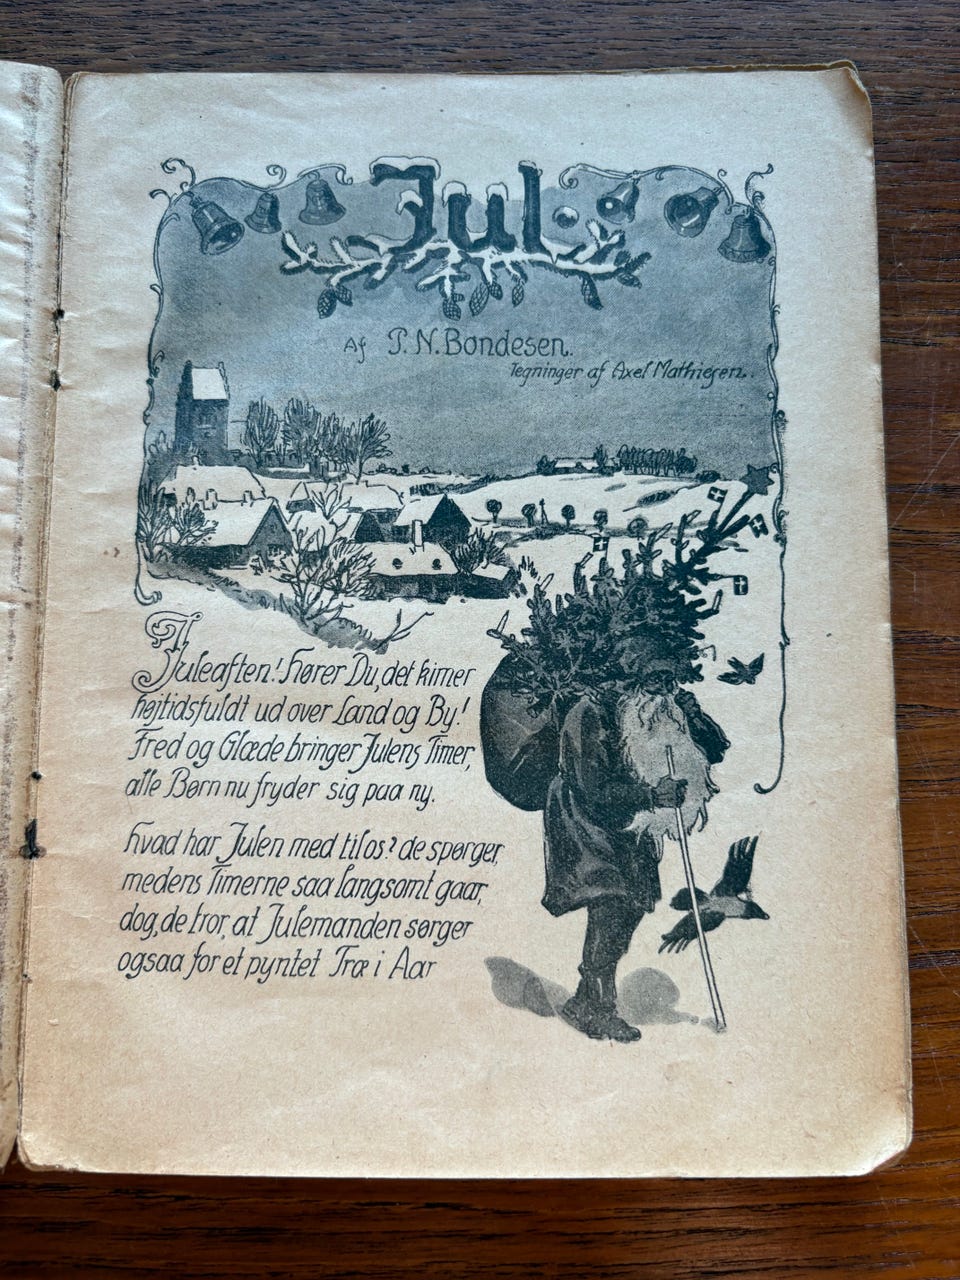 Jul.
Af P. N. Bondesen.
Tegninger af Axel Mathiesen.
Juleaften! Hører Du, det kimer
højtidsfuldt ud over Land og By!
Fred og Glæde bringer Julens Timer,
alle Børn nu fryder sig paa ny.
Hvad har Julen med til os? de spørger,
medens Timerne saa langsomt gaar,
dog, de tror, at Julemanden sørger
ogsaa for et pyntet Træ i Aar